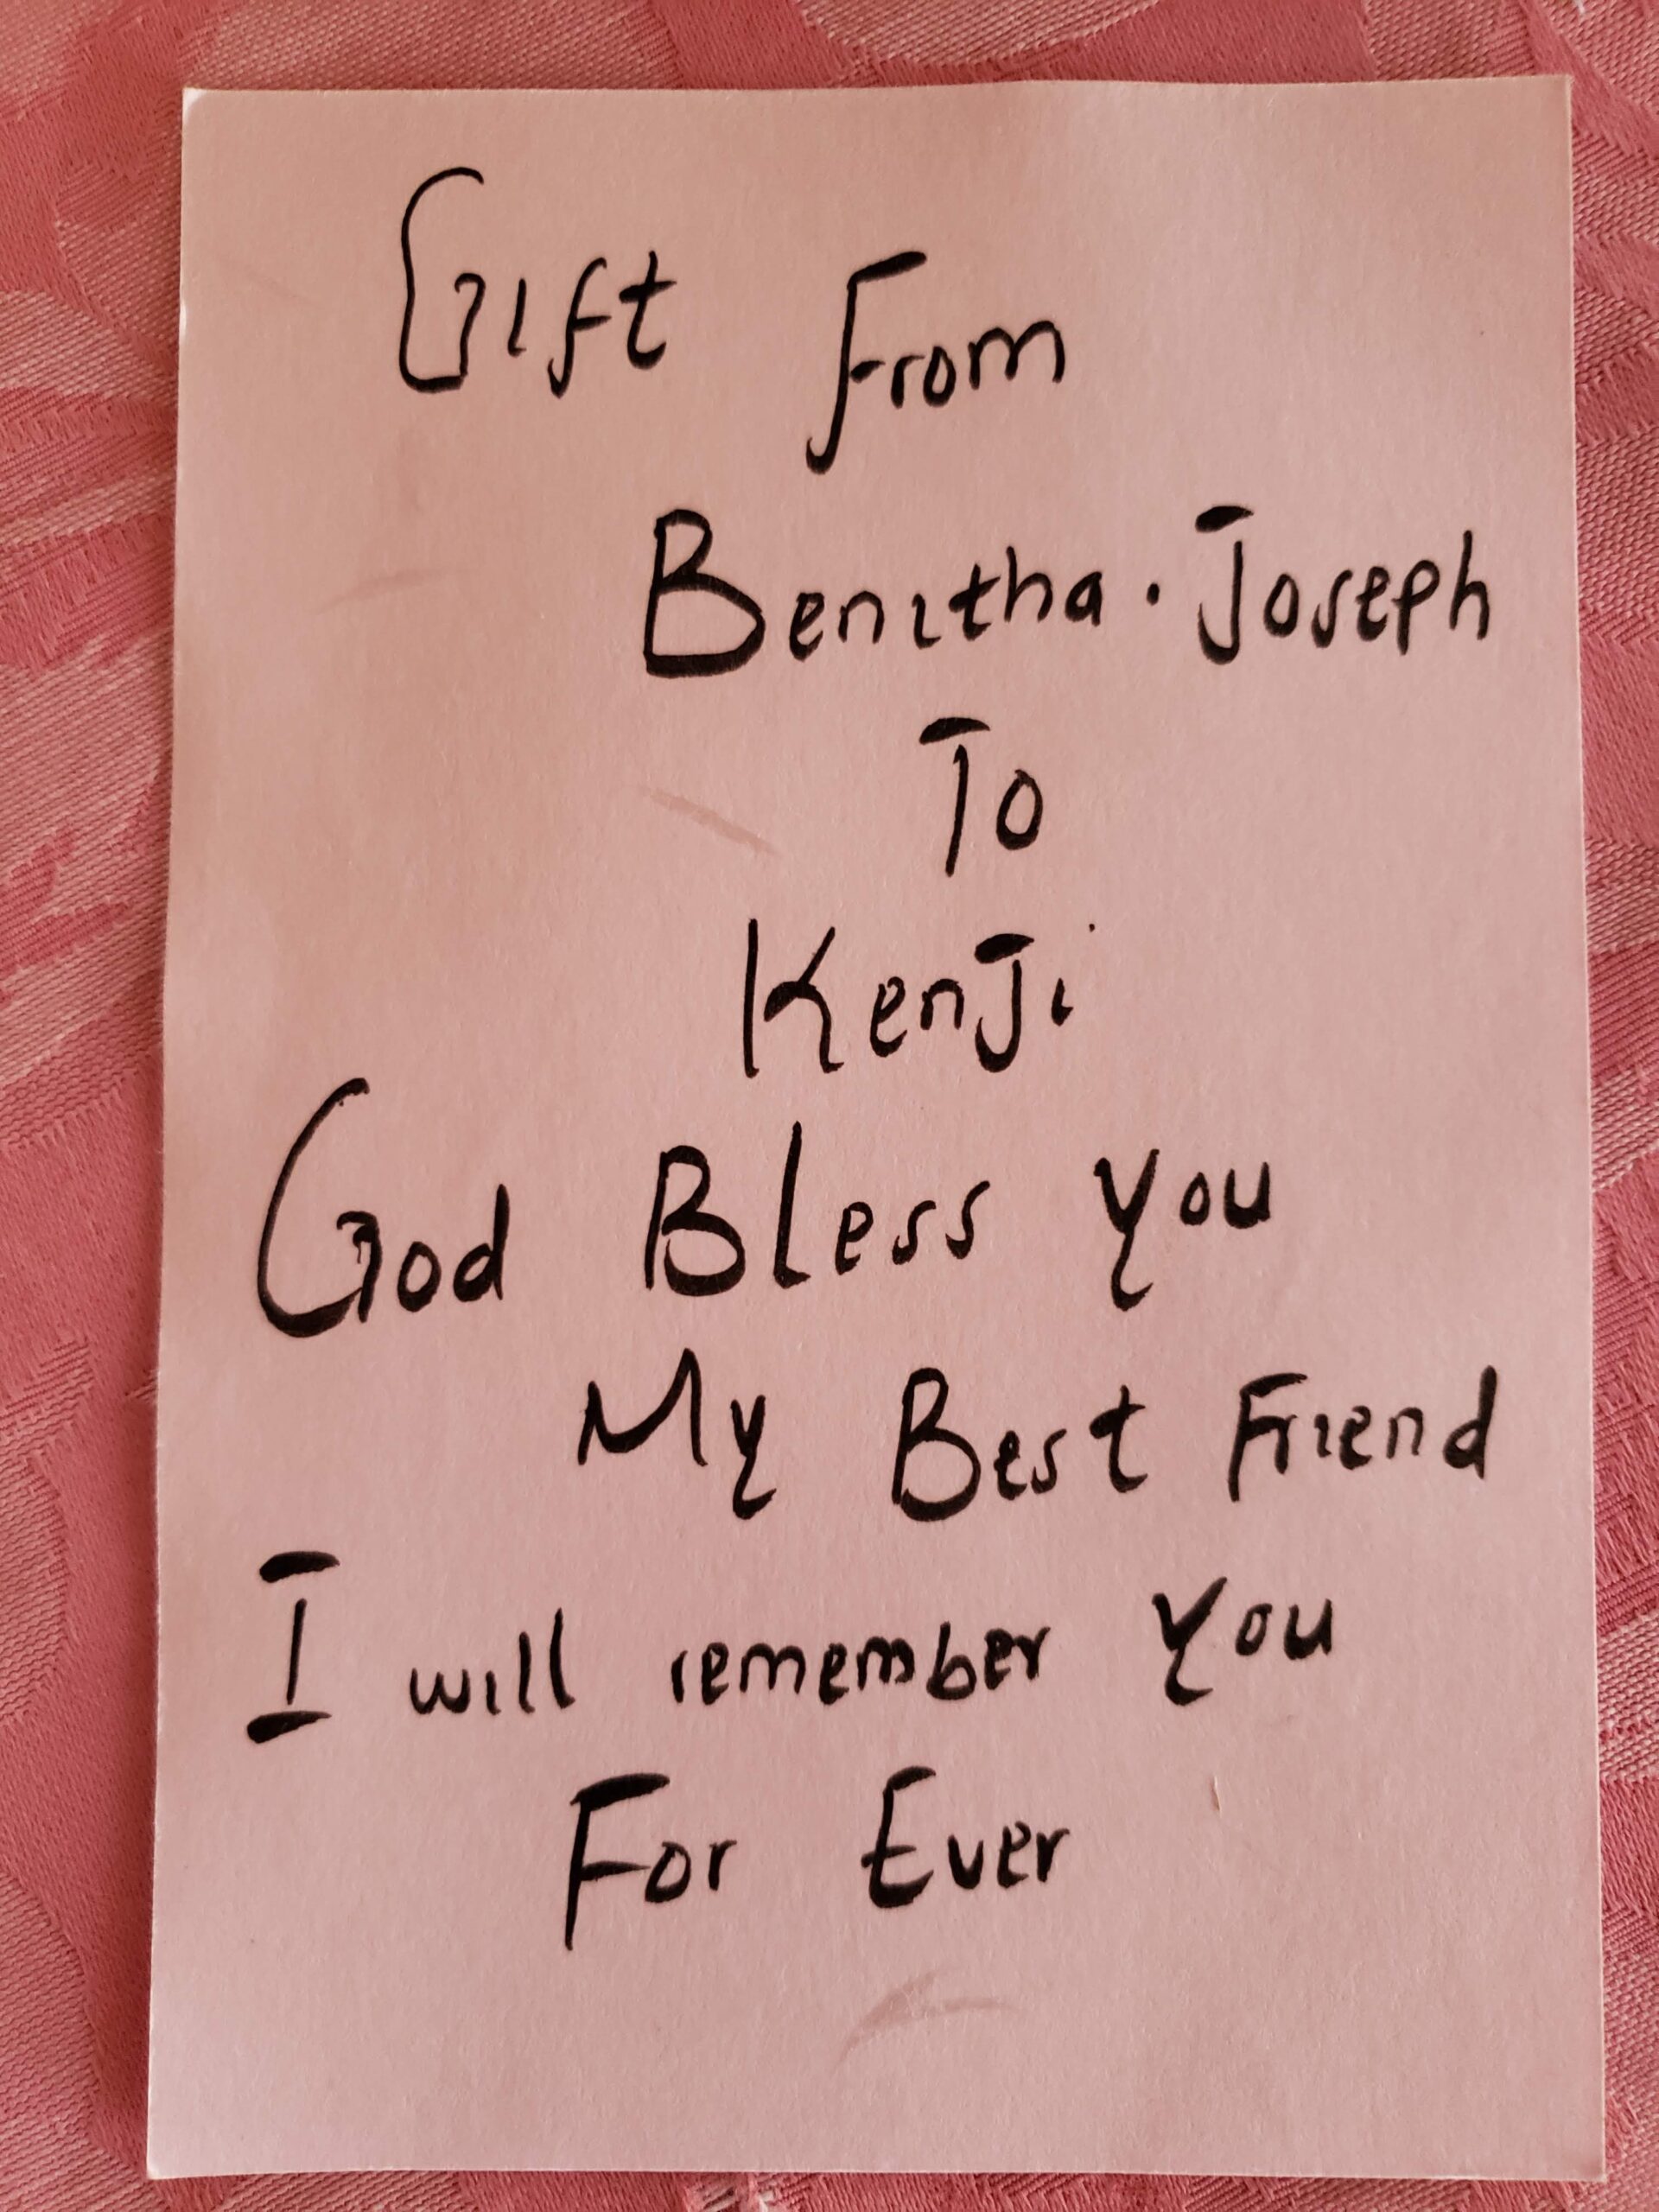 Gift From
Benitha. Joseph
To
KenJi
God Bless you
My Best Friend
I will remember you
For Ever